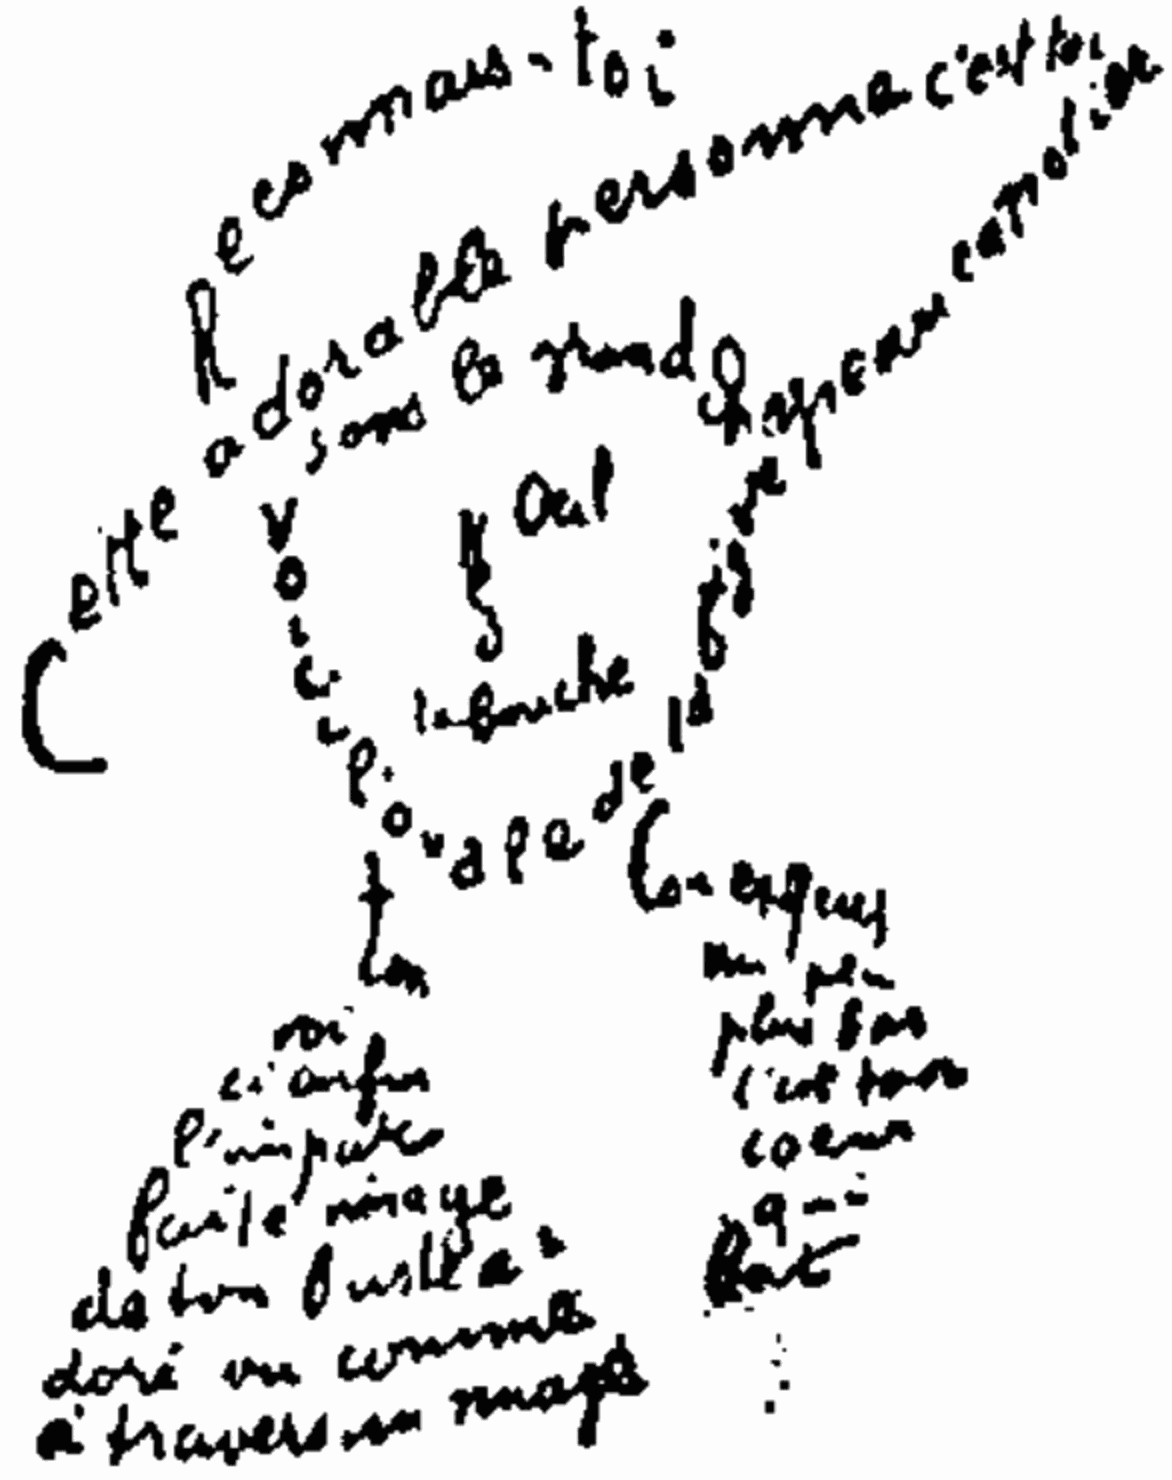 Reconnais-toi
Cette adorable personne c'est toi
sous le grand chapeau canotier
Oeil
Nez
la bouche
Voici l'ovale de ta figure
Ton cou exquis
Voi
ci enfin
l'imparfaite
image
de ton buste a
doré vu comme
à travers un nuage
un peu
plus bas
c'est ton
coeur
qui
bat